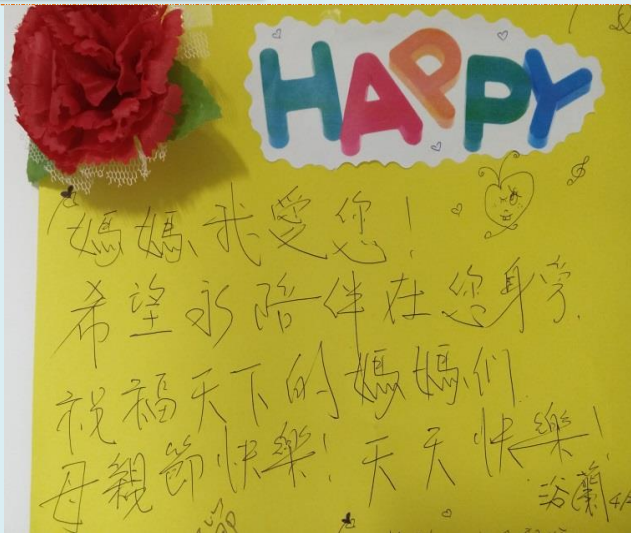 HAPPY
媽媽我愛您!
希望永陪伴在您身旁.
祝福天下的媽媽们
母親節快樂!天天快樂!